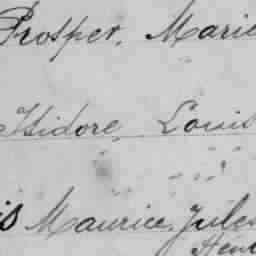 Prosper, Marie
Isidore, Louis
is Maurice, Jules
Henri